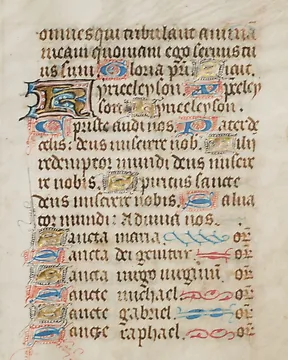 omnes qui tribulant animā
meam quoniam ego servus tu
us sum. Gloria p̄ri Sicut.
Kyrieleyson. Xp̄eley
son. Kyrieleyson.
Xp̄iste audi nos Pater de
celis. deus miserere nob. Fili
redemptor mundi deus misere
re nobis. Spiritus sancte
deus miserere nobis. Salva
tor mundi. Adiuva nos.
Sancta maria or̄
Sancta dei genitrix or̄
Sancta virgo virginū or̄
Sancte michael or̄
Sancte gabriel or̄
Sancte raphael or̄